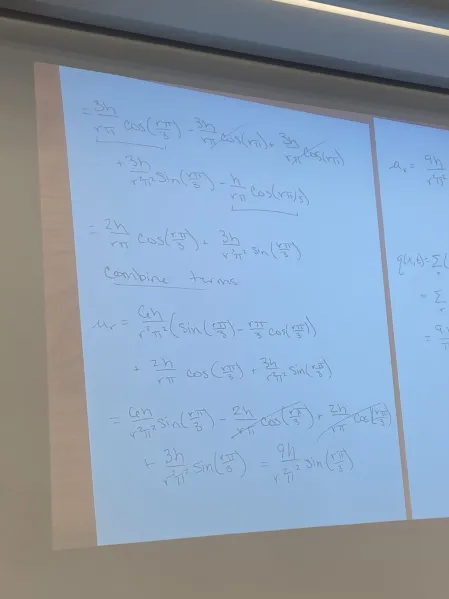 = 3h/rπ cos(rπ/3) - 3h/rπ cos(rπ) + 3h/rπ cos(rπ)
+ 3h/r²π² sin(rπ/3) - h/rπ cos(rπ/3)
= 2h/rπ cos(rπ/3) + 3h/r²π² sin(rπ/3)
Combine terms
ur = 6h/r²π² (sin(rπ/3) - rπ/3 cos(rπ/3))
+ 2h/rπ cos(rπ/3) + 3h/r²π² sin(rπ/3)
= 6h/r²π² sin(rπ/3) - 2h/rπ cos(rπ/3) + 2h/rπ cos(rπ/3)
+ 3h/r²π² sin(rπ/3) = 9h/r²π² sin(rπ/3)
ur = 9h/r²π²
= Σ